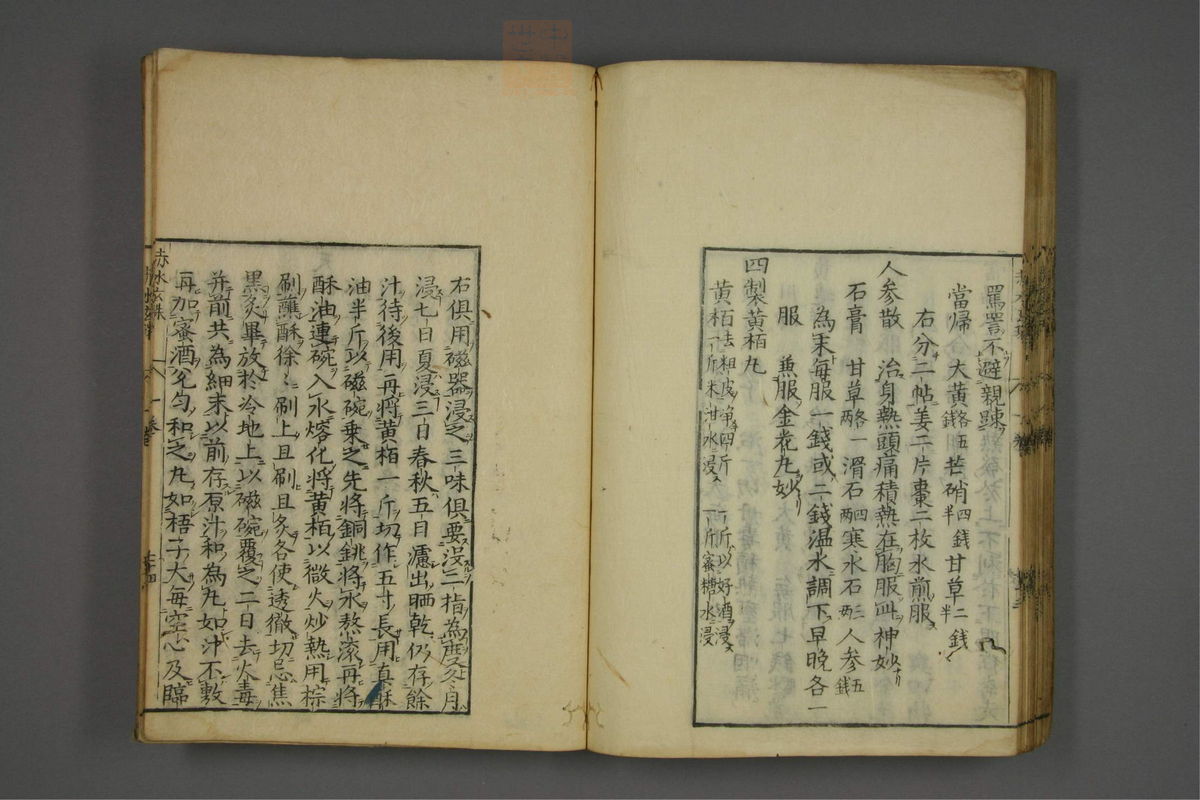 罵詈不避親踈
當歸 大黃各五錢 芒硝四錢半 甘草二錢半
右分二帖姜二片棗二枚水煎服
人參散 治身熱頭痛積熱在胸服此神妙
石膏 甘草各一兩 滑石四兩 寒水石二兩 人參五錢
為末每服一錢或二錢温水調下早晚各一
服 兼服金花丸妙
四製黃栢丸
黃栢去粗皮净四斤 一斤以好酒浸 一斤米泔水浸 一斤蜜糖水浸
右俱用磁器浸之三味俱要没二指為度冬月
浸七日夏浸三日春秋五日濾出晒乾仍存餘
汁待後用再將黃栢一斤切作五寸長用真酥
油半斤以磁碗乗之先將銅銚將水熬滚再將
酥油連碗入水熔化將黃栢以微火炒熱用棕
刷蘸酥徐〻刷上且刷且炙各使透徹切忌焦
黑炙畢放於冷地上以磁碗覆之二日去火毒
并前共為細末以前存原汁和為丸如汁不敷
再加蜜酒允匀和之丸如梧子大每空心及臨
赤水玄珠